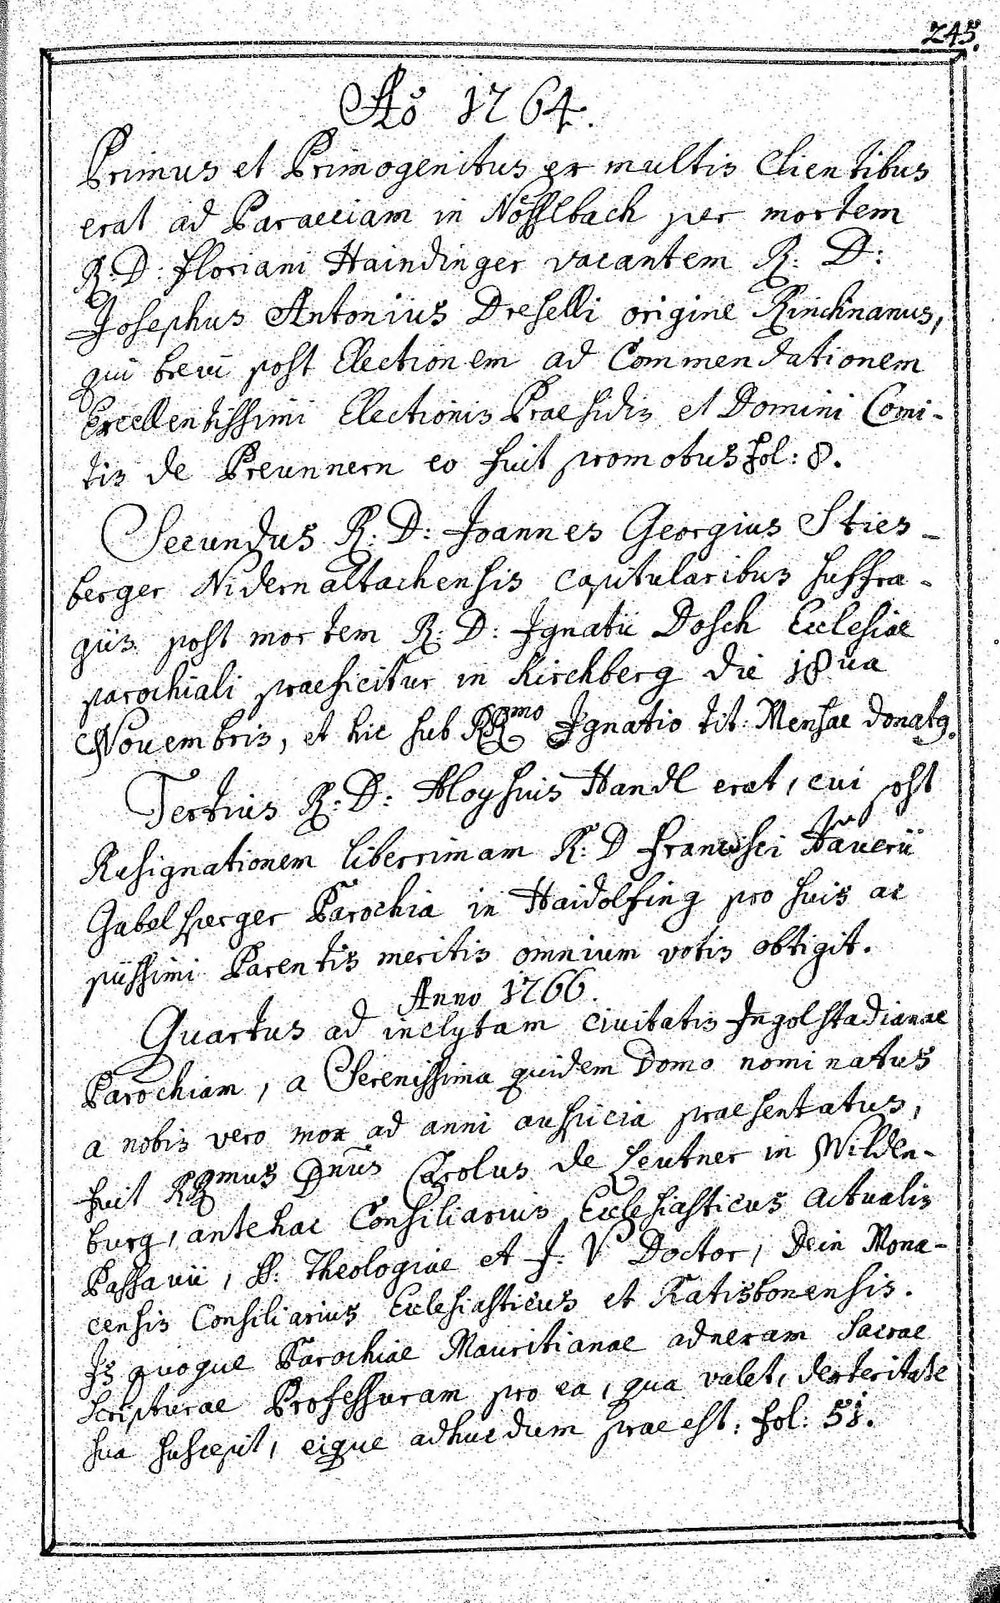 245.
Ao 1764.
Primus et Primogenitus ex multis Clientibus
erat ad Paraeciam in Nösslbach per mortem
R: D: Floriani Haindinger vacantem R: D:
Josephus Antonius Dreselli origine Rinchnanus,
qui brevi post Electionem ad Commendationem
Excellentissimi Electionis Praesidis et Domini Comi-
tis de Preunnern eo fuit promotus Fol: 8.
Secundus R: D: Joannes Georgius Sties-
berger Nidernaltachensis capitularibus suffra-
giis post mortem R: D: Ignatii Dosch Ecclesiae
parochiali praeficitur in Kirchberg die 18va
Novembris, et hic sub RRmo Ignatio tit: Mensae donatg.
Tertius R: D: Aloysius Handl erat, cui post
Resignationem liberrimam R: D Francisci Xaverii
Gabelsperger Parochia in Haidolfing pro suis ac
piissimi Parentis meritis omnium votis obtigit.
Anno 1766.
Quartus ad inclytam civitatis Ingolstadianae
Parochiam, a Serenissima quidem Domo nominatus
a nobis vero mox ad anni auspicia praesentatus,
fuit RRmus Dnus Carolus de Zeutner in Wilden-
burg, antehac Consiliarius Ecclesiasticus actualis
Passavii, SS: Theologiae et J: V Doctor, dein Mona-
censis Consiliarius Ecclesiasticus et Ratisbonensis.
Is quoque Parochiae Mauritianae adnexam Sacrae
Scripturae Professuram pro ea, qua valet, dexteritate
sua suscepit, eique adhucdum praeest: fol: 51.